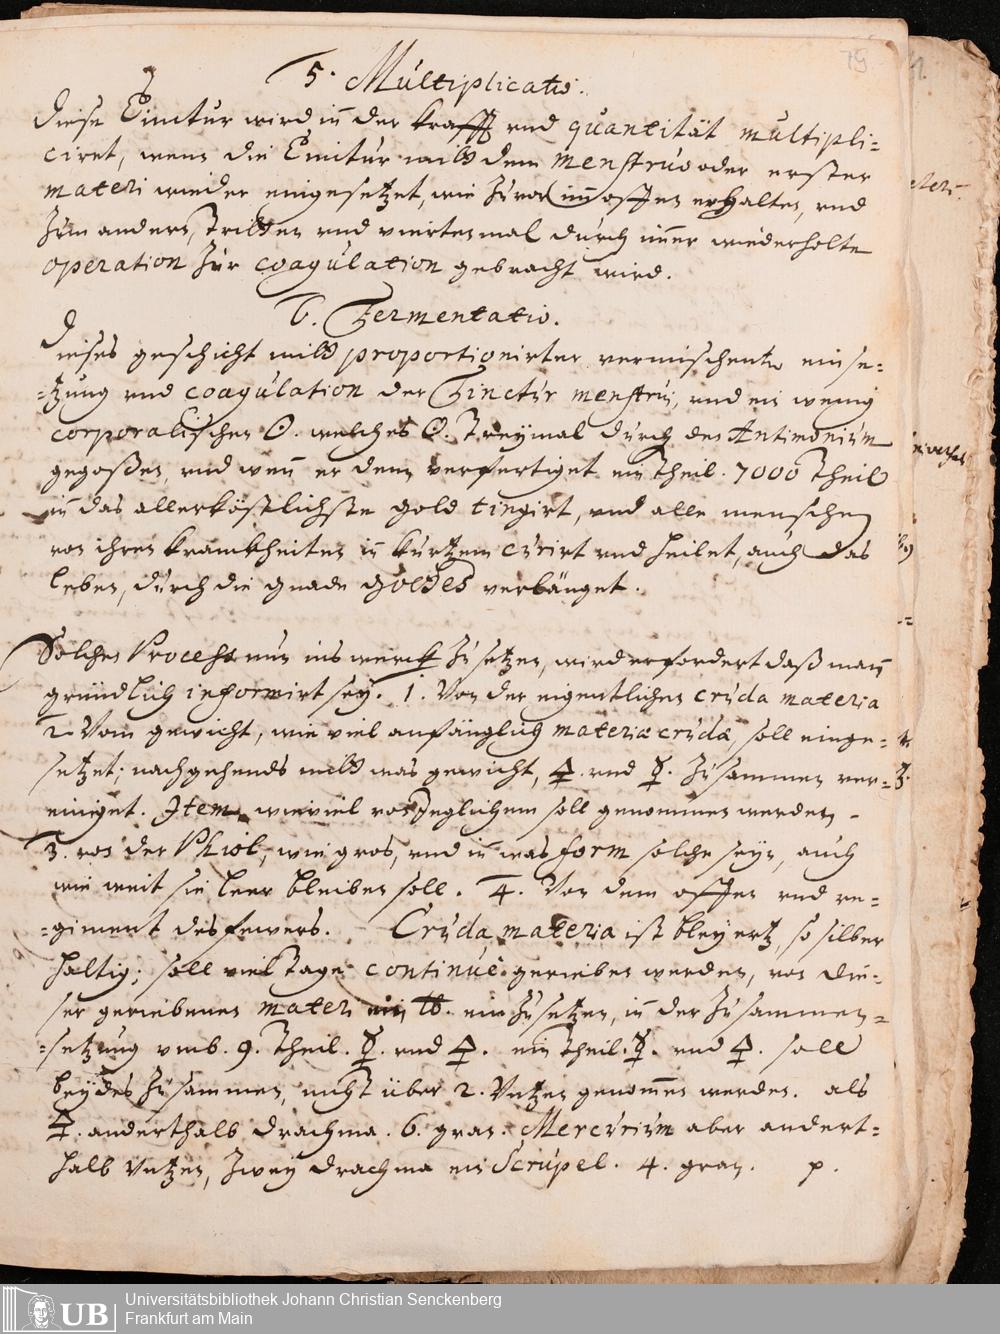 79
5. Multiplicatio.
Diese Tinctur wird in der krafft vnd quantität multipli=
ciret, wenn die Tinctur mitt dem menstruo oder erster
materi wieder eingesetzet, wie zuvor im offen erhalten, vnd
zum andern, dritten vnd viertenmal durch immer wiederholte
operation zur coagulation gebracht wird.
6. Fermentatio.
Dieses geschicht mitt proportionirter vermischent einse=
=tzung vnd coagulation der Tinctur menstrui, vnd ein wenig
corporalischen ☉. welches ☉. dreymal durch den Antimonium
gegoßen, vnd wenn er denn verfertiget ein theil. 7000 theil
in das allerköstlichste gold tingirt, vnd alle menschen
von ihren kranckheiten in kurtzem curirt vnd heilet, auch das
leben, durch die gnade Gottes verlänget.
Solchen Process nun ins werck zu setzen, wird erfordert daß mann
gründlich informirt sey. 1. Von der eigentlichen cruda materia
2. Vom gewicht, wie viel anfänglich materiæ crudæ, soll einge=
setzet; nachgehends mitt was gewicht, 🜍. vnd ☿. zusammen ver=
einiget. Item, wieviel von Jeglichem soll genommen werden.
3. von der Phiol, wie gros, vnd in was form solche seyn, auch
wie weit sie leer bleiben soll. 4. Von dem offen vnd re=
=giment des fewers. Cruda materia ist bleyertz, so silber
haltig; soll viel Tage continuè gerieben werden, von die=
ser geriebenen materi ein ℔. ein zu setzen, in der zusammen=
=setzung vmb. 9. theil. ☿. vnd 🜍. ein theil. ☿. vnd 🜍. soll
beydes zusammen, nicht über 2. Vntzen genommen werden. als
🜍. anderthalb drachma. 6. gran. Mercurium aber andert=
halb Vntzen, zwey drachma ein Scrupel. 4. gran. p.
UB
Universitätsbibliothek Johann Christian Senckenberg
Frankfurt am Main